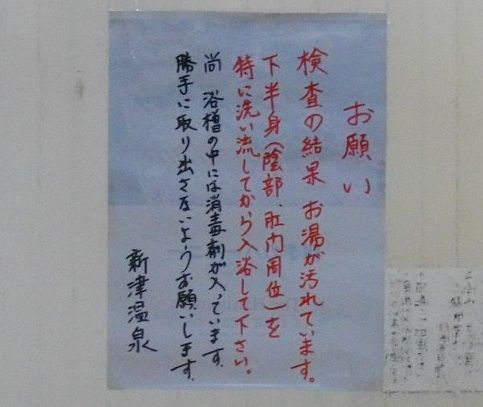 お願い
検査の結果 お湯が汚れています。
下半身(陰部、肛内周位)を
特に洗い流してから入浴して下さい。
尚 浴槽の中には消毒剤が入っています。
勝手に取り出さないようお願いします。
新津温泉